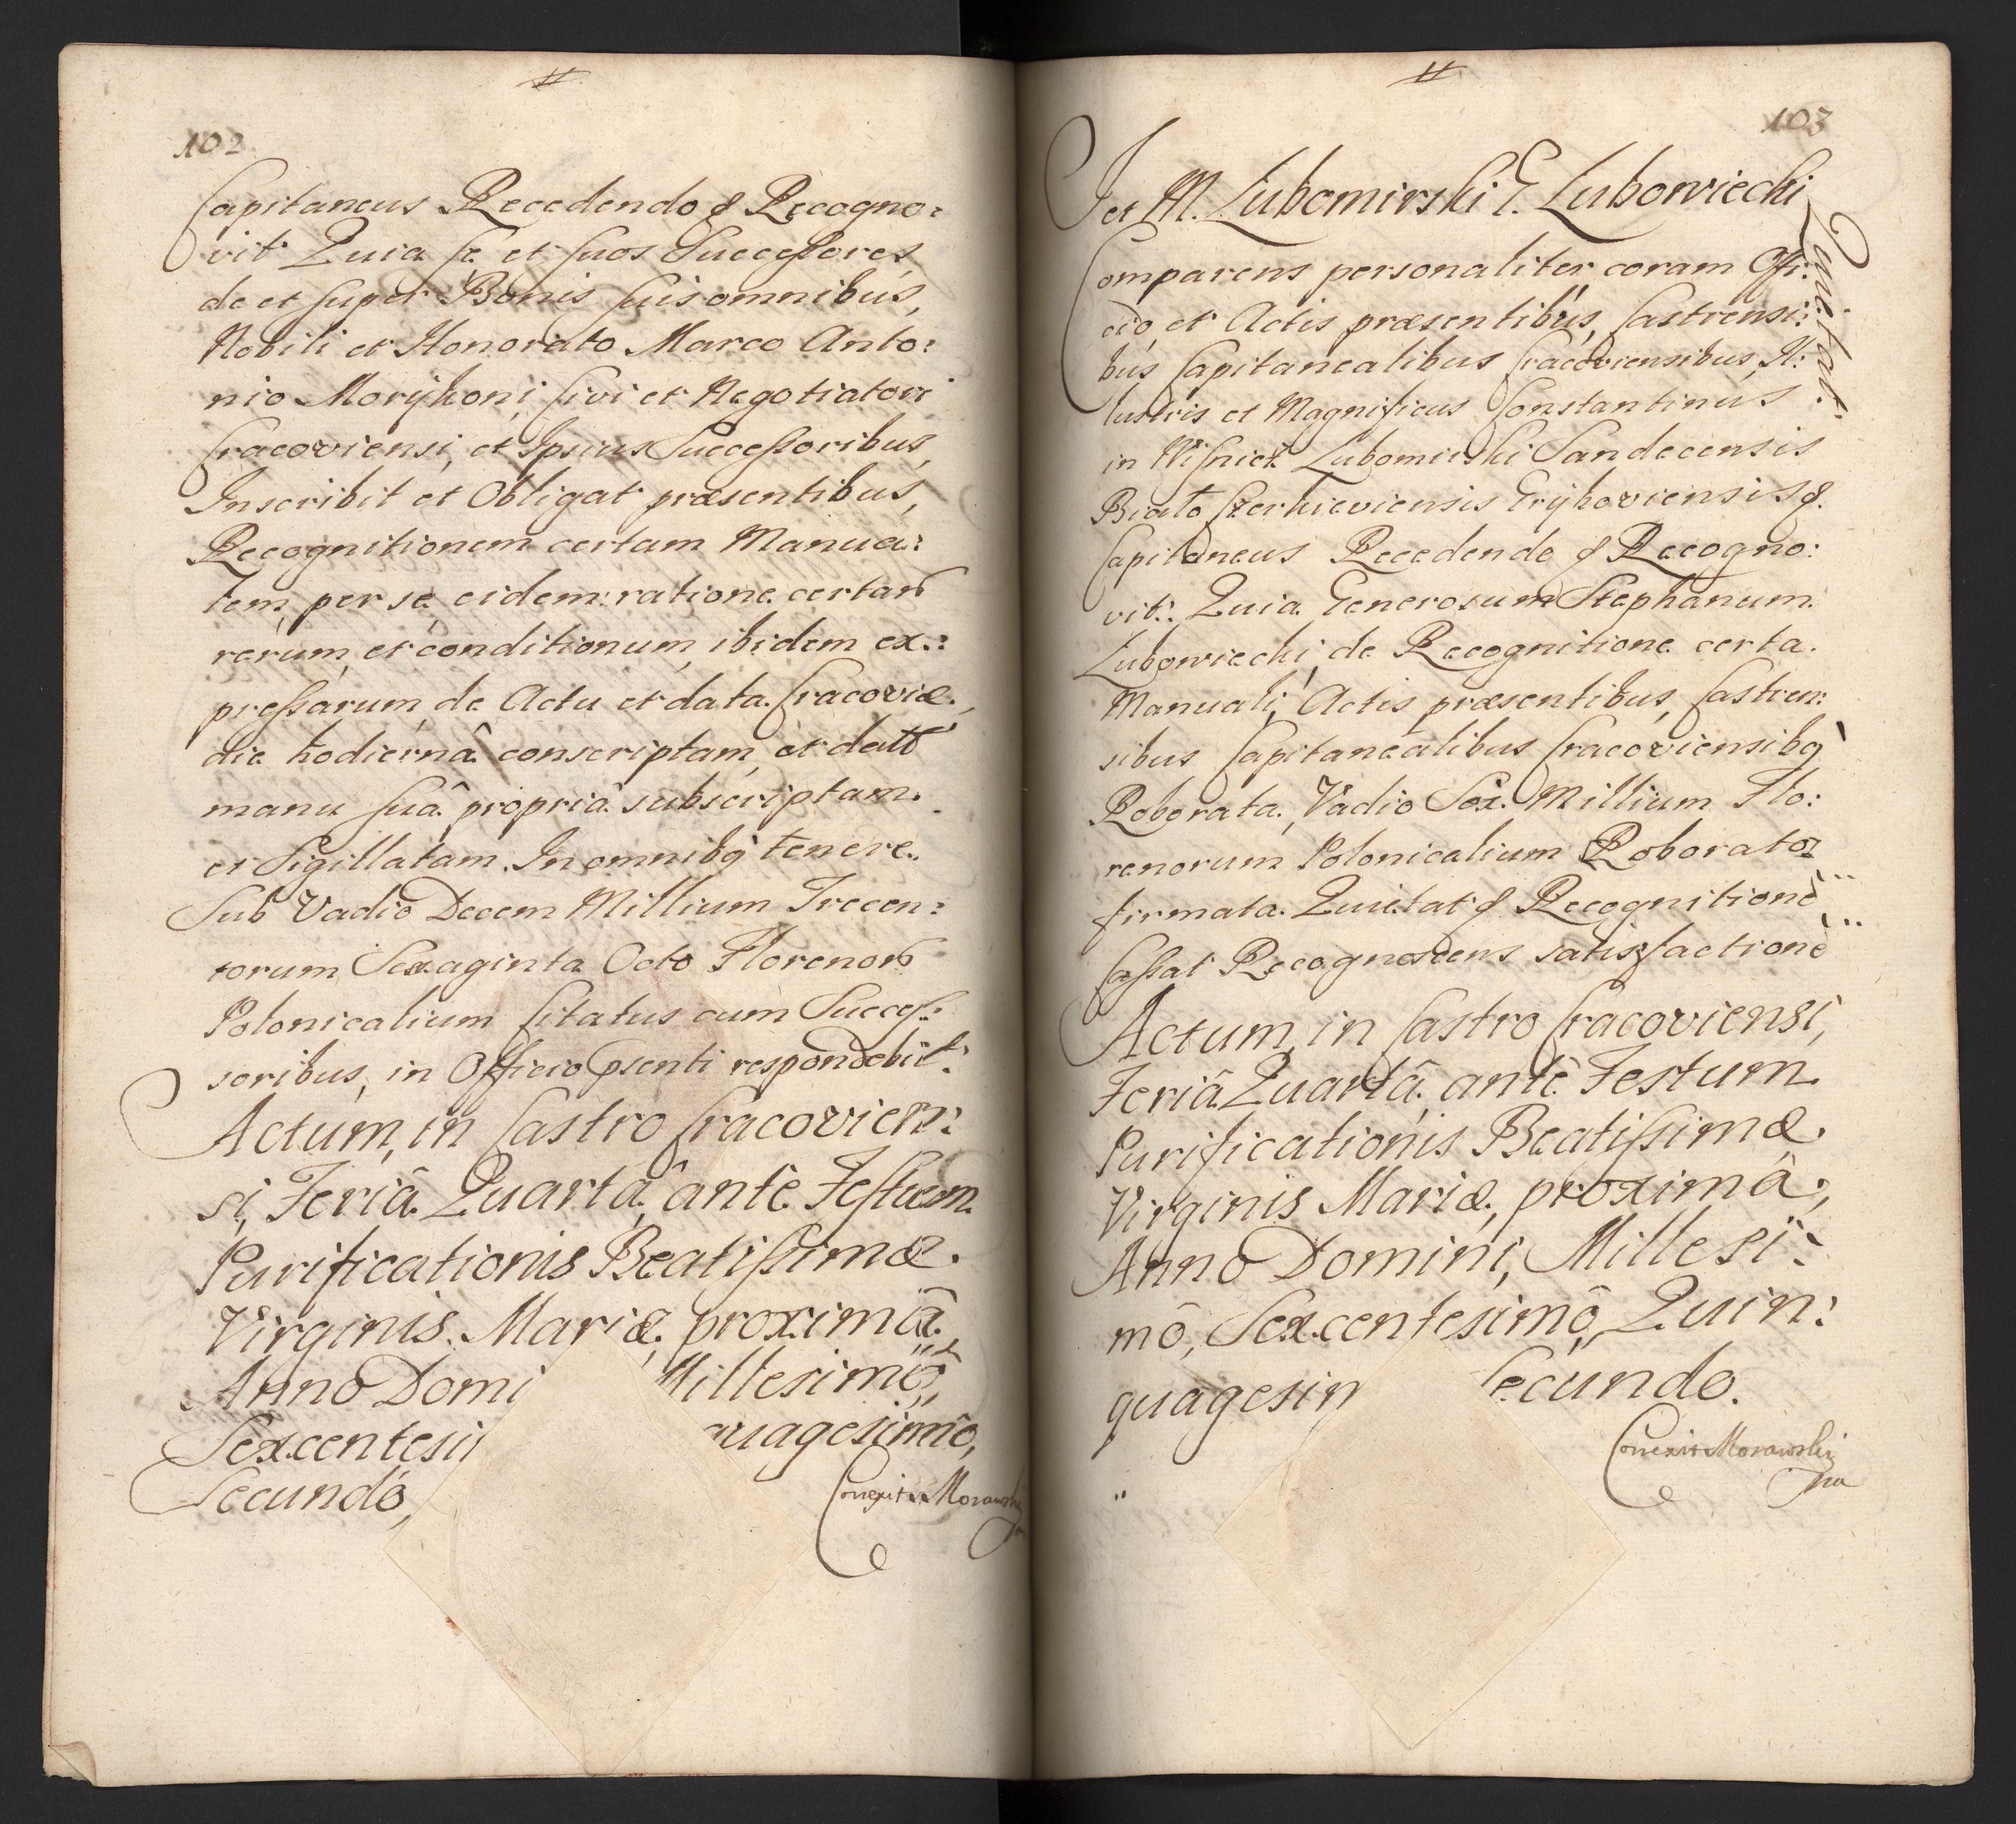 102
Capitaneus Recedendo & Recogno:
vit Quia se et suos Successores
de et super Bonis suis omnibus,
Nobili et Honorato Marco Anto:
nio Morÿkoni, Civi et Negotiatori
Cracoviensi, et Ipsius Successoribus,
Inscribit et Obligat præsentibus,
Recognitionem certam Manua:
lem, per se, eidem ratione certar
rerum, et conditionum, ibidem ex:
pressarum, de Actu et data Cracoviæ,
die hodiernâ conscriptam, et
manu suâ propriâ subscriptam
et Sigillatam. In omnibq tenere.
Sub Vadio Decem Millium Trecen:
torum Sexaginta Octo Florenor
Polonicalium Citatus cum Succes:
soribus, in Officio psenti respondebit:
Actum, in Castro Cracovien:
si, Feriâ Quartâ, antè Festum
Purificationis Beatissimæ
Virginis Mariæ, proximâ,
Anno Domi Millesimô,
Sexcentesi quagesimô,
Secundô,
Correxit Morawski
103
Jet M. Lubomirski G. Lubowiecki
Quietat:
Comparens personaliter coram Offi:
ciô, et Actis præsentibus, Castrensi:
bus Capitanealibus Cracoviensibus, Il:
lustris et Magnificus Constantinus
in Wisnicz Lubomirski Sandecensis
Biało Cerkieviensis Grÿboviensis &
Capitaneus Recedendo & Recogno:
vit: Quia Generosum Stephanum
Lubowiecki, de Recognitione certa
Manuali, Actis præsentibus, Castren:
sibus Capitanealibus Cracoviensibq
Roborata, Vadio Sex Millium Flo:
renorum Polonicalium Roborator
firmata. Quietat & Recognitionē
Cassat Recognoscens satisfactionē
Actum, in Castro Cracoviensi,
Feriâ Quartâ antè Festum
Purificationis Beatissimæ
Virginis Mariæ, proximâ,
Anno Domini, Millesi:
mô, Sexcentesimô, Quin:
quagesim Secundo.
Correxit Morawski
mp